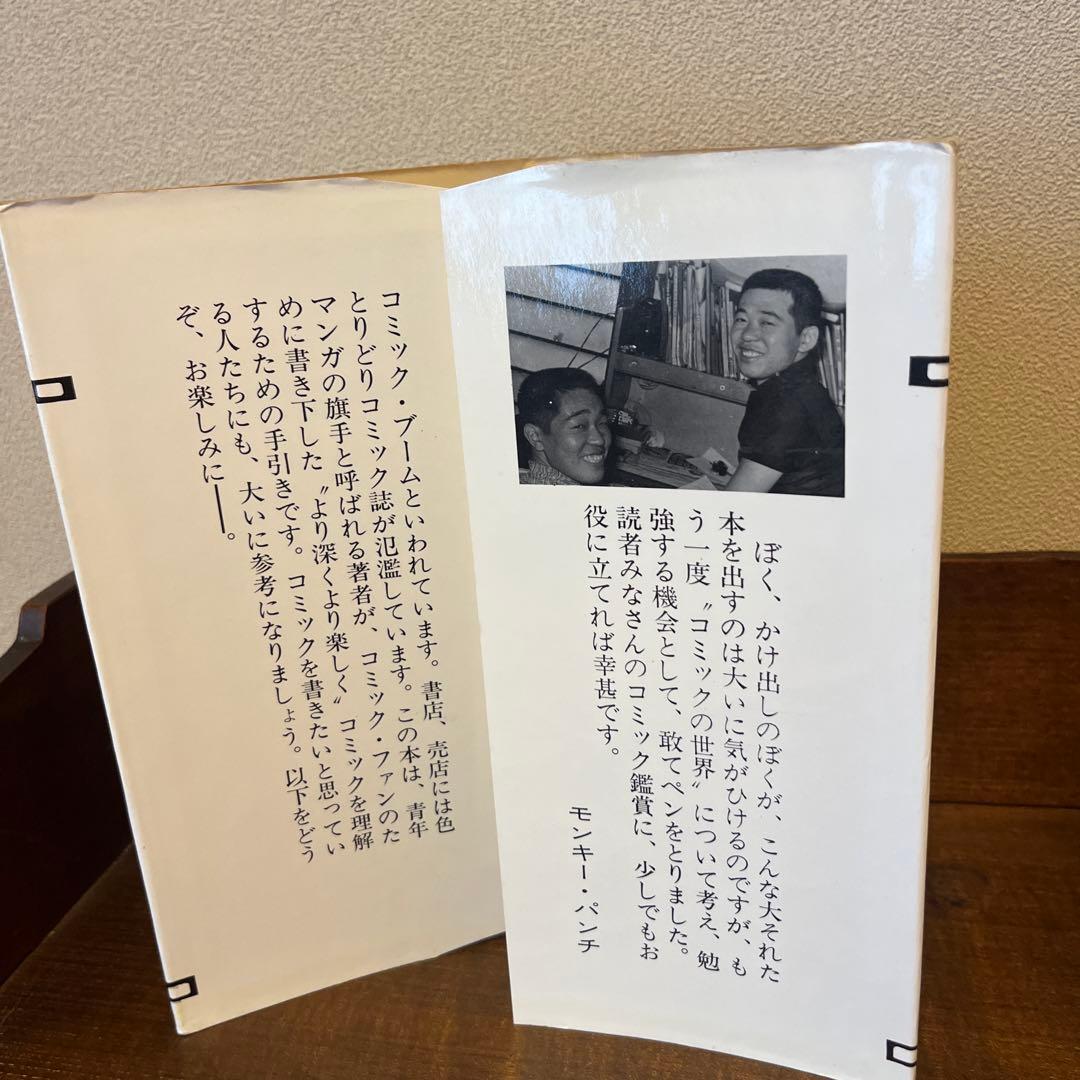 ぼく、かけ出しのぼくが、こんな大それた
本を出すのは大いに気がひけるのですが、も
う一度〝コミックの世界〟について考え、勉
強する機会として、敢てペンをとりました。
読者みなさんのコミック鑑賞に、少しでもお
役に立てれば幸甚です。
モンキー・パンチ
コミック・ブームといわれています。書店、売店には色
とりどりコミック誌が氾濫しています。この本は、青年
マンガの旗手と呼ばれる著者が、コミック・ファンのた
めに書き下した〝より深くより楽しく〟コミックを理解
するための手引きです。コミックを書きたいと思ってい
る人たちにも、大いに参考になりましょう。以下をどう
ぞ、お楽しみに――。